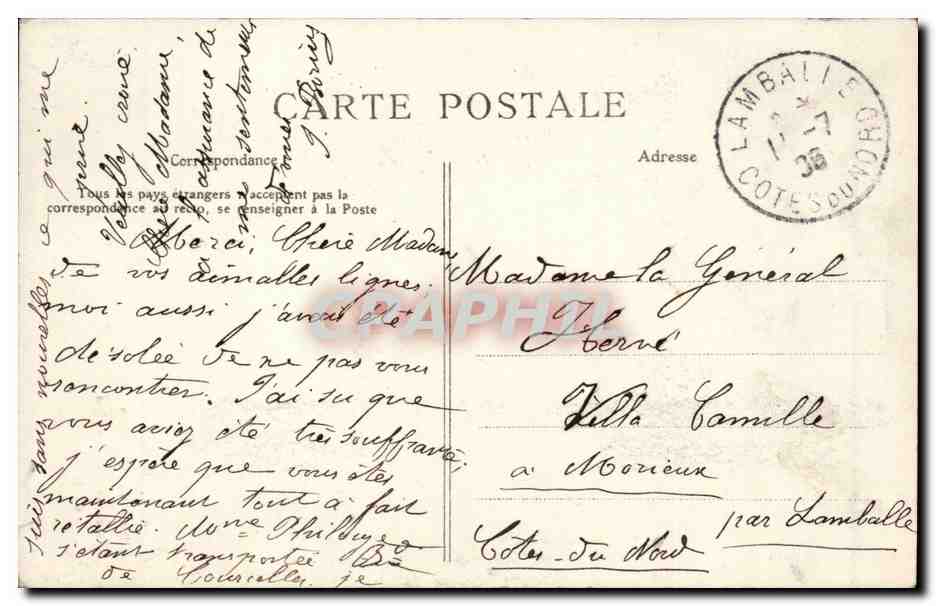 CARTE POSTALE
Correspondance
Tous les pays étrangers n'acceptent pas la
correspondance au recto, se renseigner à la Poste
Merci, Chère Madame,
de vos aimables lignes.
moi aussi j'avais été
désolée de ne pas vous
rencontrer. J'ai su que
vous aviez été très souffrante,
j'espère que vous êtes
maintenant tout à fait
rétablie. Mme
s'étant transportée Bd
de Courcelles, je
suis sans nouvelles ce qui me
peine.
Veuillez croire
Chère Madame,
à l'assurance de
mes sentiments
Adresse
Madame la Général
Hervé
Villa Camille
à Morieux
par Lamballe
Côtes-du-Nord
LAMBALLE
COTES DU NORD
CRAPHIL